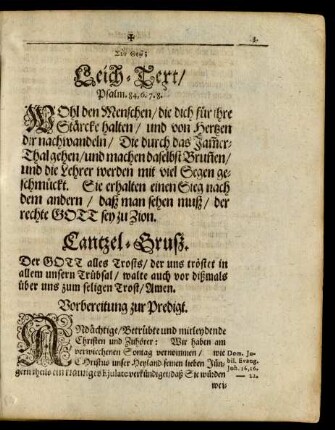 3.
Leich-Text/
Psalm. 84. 6. 7. 8.
WOhl den Menschen/ die dich für ihre
Stärcke halten/ und von Hertzen
dir nachwandeln/ Die durch das Jam̃er-
Thal gehen/ und machen daselbst Brunnen/
und die Lehrer werden mit viel Segen ge-
schmückt. Sie erhalten einen Sieg nach
dem andern/ daß man sehen muß/ der
rechte GOTT sey zu Zion.
Cantzel-Gruß.
Der GOTT alles Trosts/ der uns tröstet in
allem unsern Trübsal/ walte auch vor dißmals
über uns zum seligen Trost/ Amen.
Vorbereitung zur Predigt.
ANdächtige/ Betrübte und mitleydende
Christen und Zuhörer: Wir haben am
verwiechenen Sontag vernommen/ wie
Christus unser Heyland seinen lieben Jün-
gern ein trauriges verkündiget/ daß Sie würden
wei-
Dom. Ju-
bil. Evang.
Joh. 16, 16.
— 22.